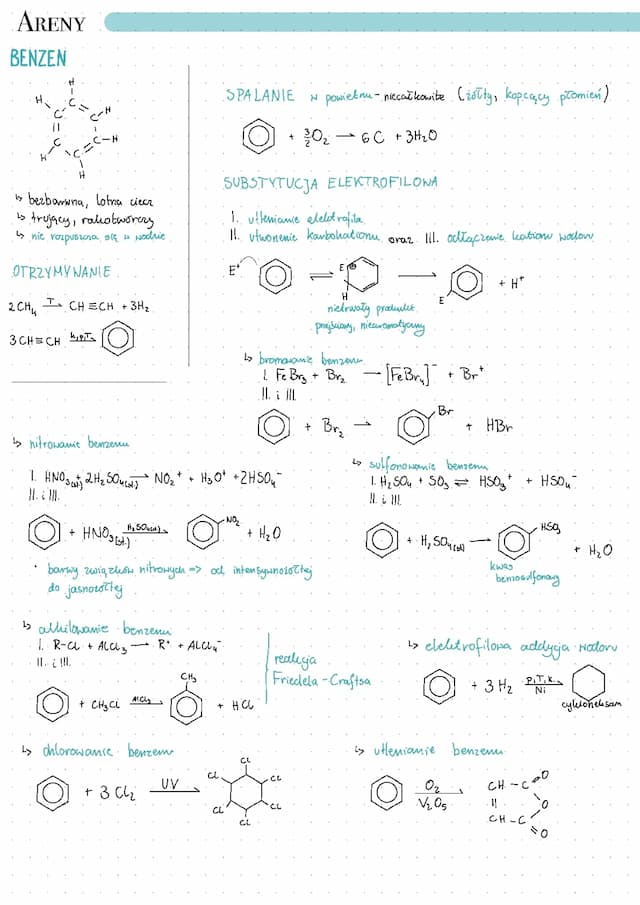 ARENY
BENZEN
bezbarwna, lotna ciecz
trujący, rakotwórczy
nie rozpuszcza się w wodzie
OTRZYMYWANIE
2CH₄ —T→ CH≡CH + 3H₂
3CH≡CH —kat,p,T→
SPALANIE w powietrzu - niecałkowite (żółty, kopcący płomień)
+ 3/2 O₂ → 6C + 3H₂O
SUBSTYTUCJA ELEKTROFILOWA
I. utlenianie elektrofila
II. utworzenie karbokationu oraz III. odłączenie kationu wodoru
E⁺ ⇌ E H → E + H⁺
nietrwały produkt
przejściowy, niearomatyczny
↳ bromowanie benzenu
I. FeBr₃ + Br₂ → [FeBr₄]⁻ + Br⁺
II. i III.
+ Br₂ → Br + HBr
↳ nitrowanie benzenu
I. HNO₃(st) + 2H₂SO₄(st) → NO₂⁺ + H₃O⁺ + 2HSO₄⁻
II. i III.
+ HNO₃(st.) —H₂SO₄(st)→ NO₂ + H₂O
• barwy związków nitrowych => od intensywnożółtej
do jasnożółtej
↳ sulfonowanie benzenu
I. H₂SO₄ + SO₃ ⇌ HSO₃⁺ + HSO₄⁻
II. i III.
+ H₂SO₄(st) → HSO₃ + H₂O
kwas
benzosulfonowy
↳ alkilowanie benzenu
I. R-Cl + AlCl₃ → R⁺ + AlCl₄⁻
II. i III.
+ CH₃Cl —AlCl₃→ CH₃ + HCl
reakcja
Friedela-Craftsa
↳ elektrofilowa addycja wodoru
+ 3H₂ —p,T,k. Ni→
cykloheksan
↳ chlorowanie benzenu
+ 3Cl₂ —UV→ Cl Cl Cl Cl Cl Cl
↳ utlenianie benzenu
—O₂ V₂O₅→ CH - C O
O
CH - C O